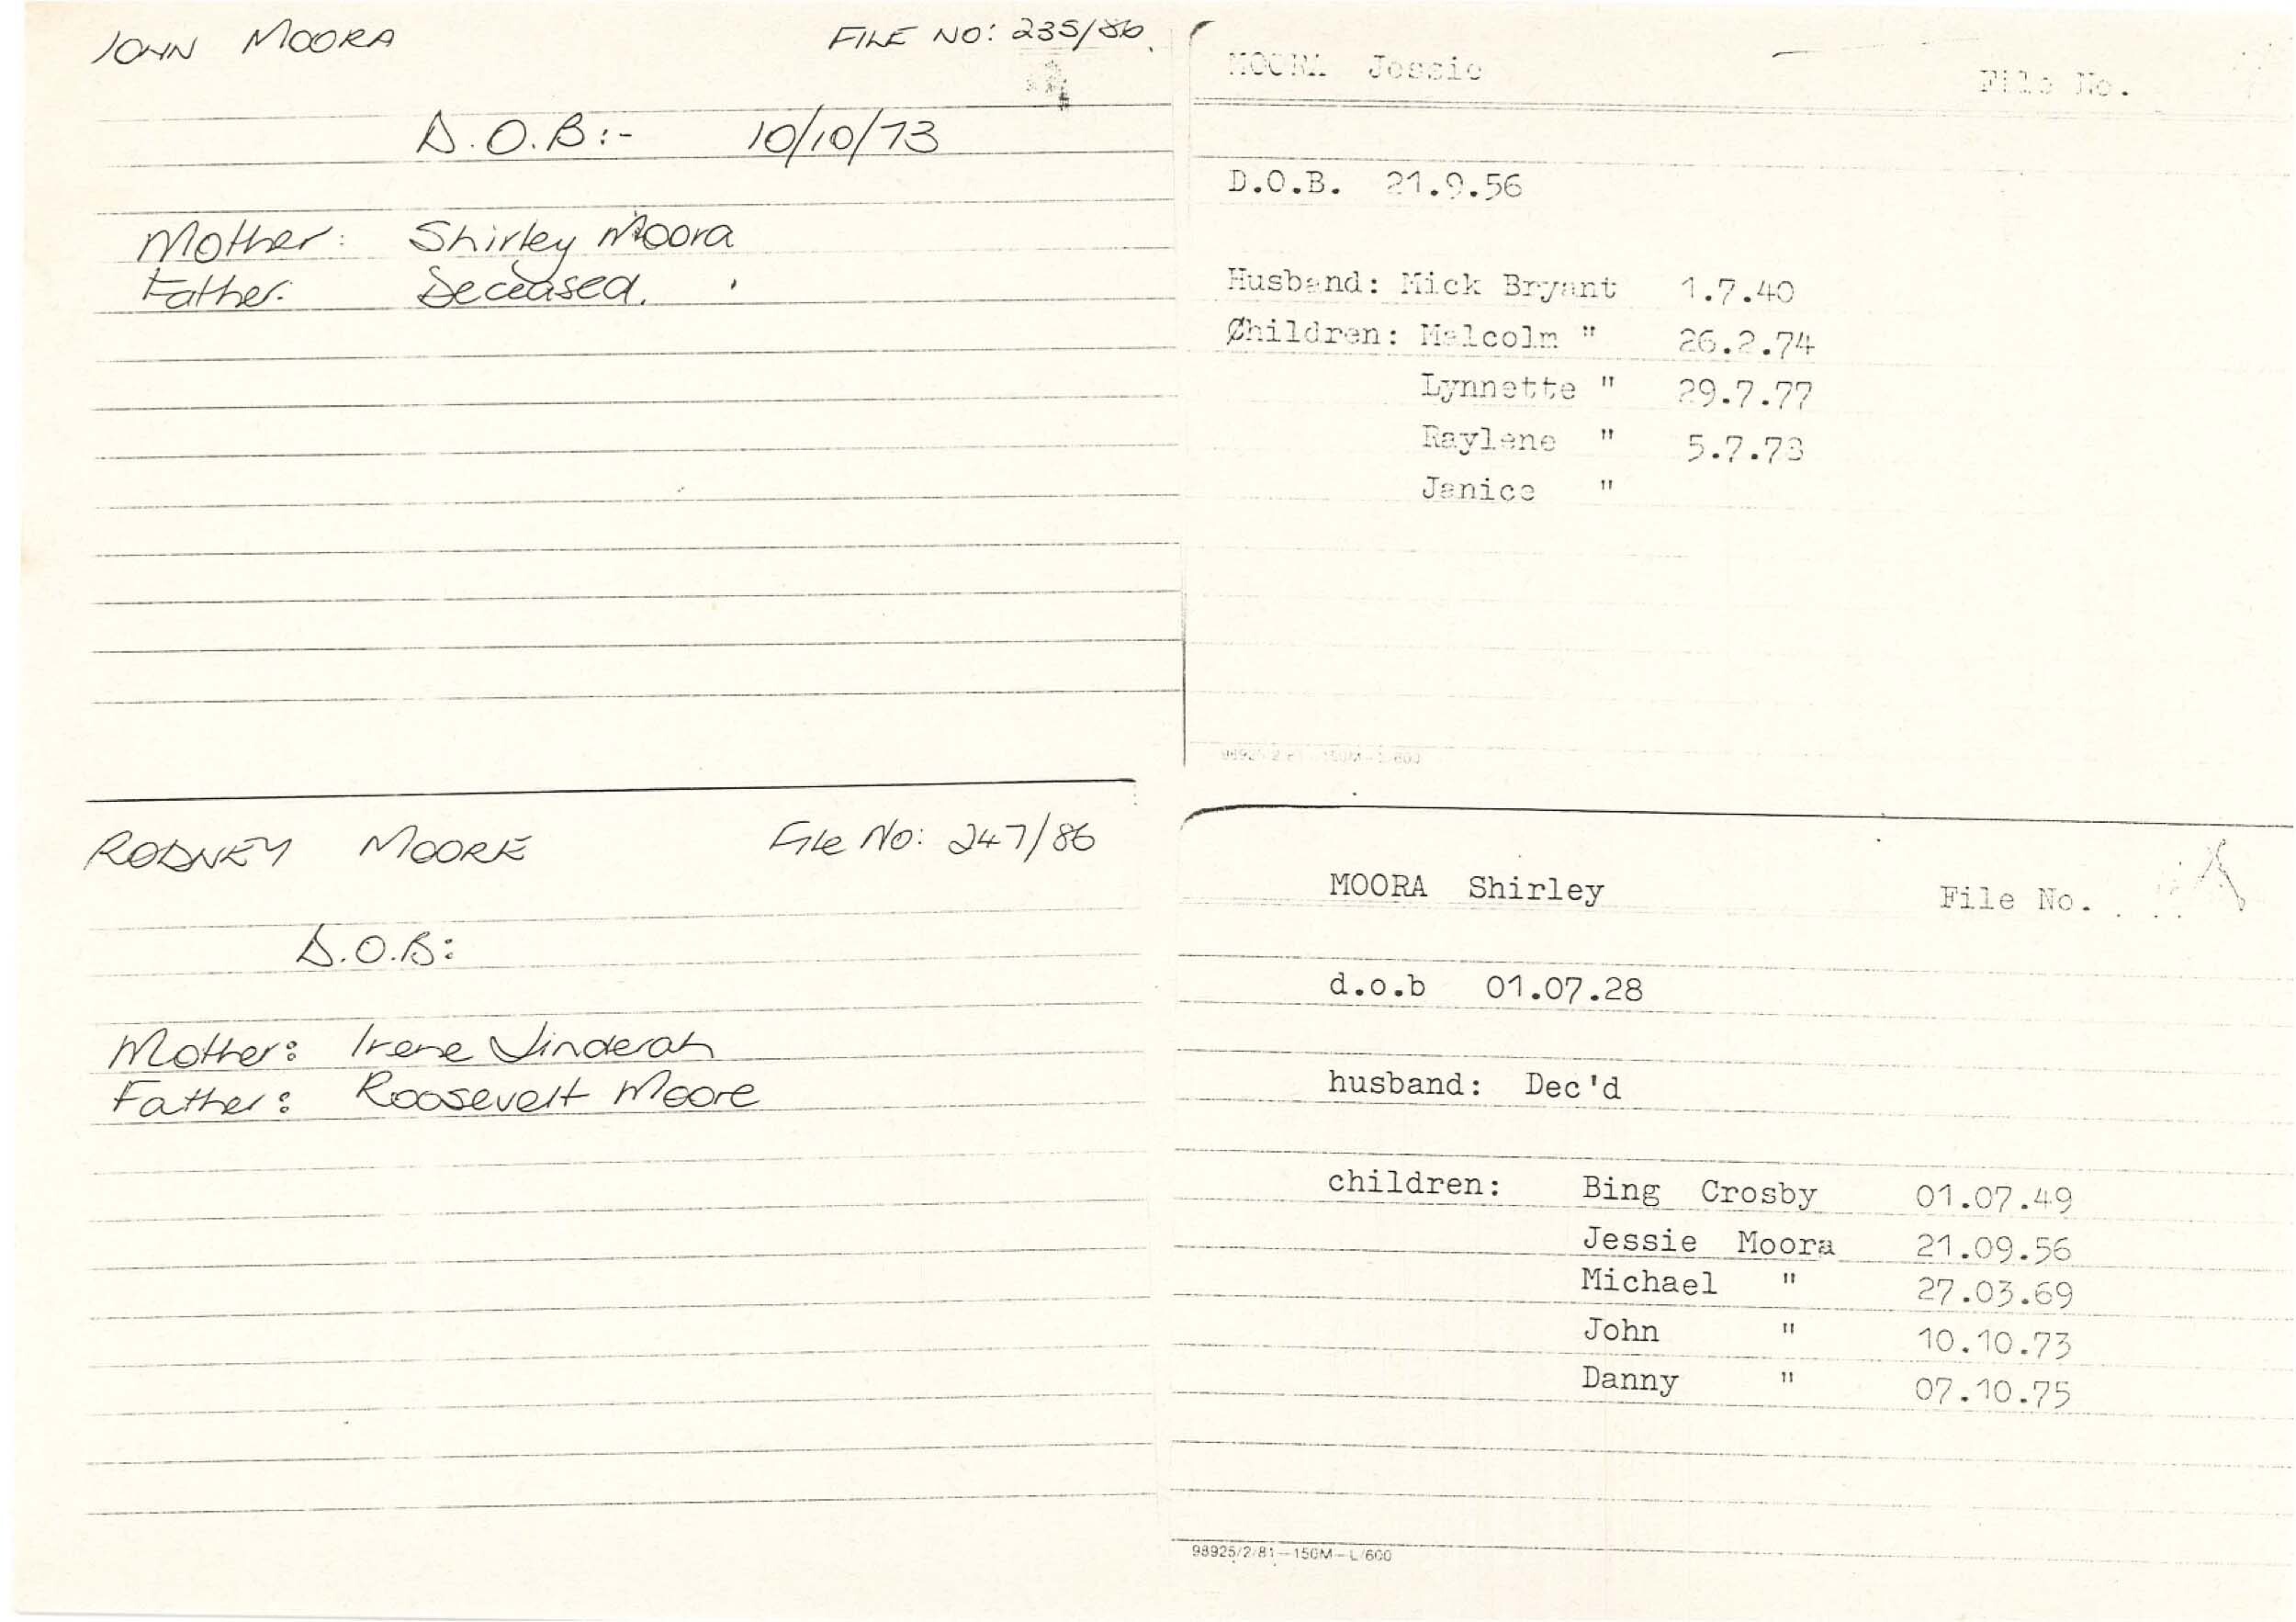 JOHN MOORA FILE NO: 235/86
D.O.B:- 10/10/73
Mother: Shirley Moora
Father: Deceased.
MOORA Jessie File No.
D.O.B. 21.9.56
Husband: Mick Bryant 1.7.40
Children: Malcolm " 26.2.74
Lynnette " 29.7.77
Raylene " 5.7.78
Janice "
RODNEY MOORE File No: 247/86
D.O.B:
Mother: Irene Jinderah
Father: Roosevelt Moore
MOORA Shirley File No.
d.o.b 01.07.28
husband: Dec'd
children: Bing Crosby 01.07.49
Jessie Moora 21.09.56
Michael " 27.03.69
John " 10.10.73
Danny " 07.10.75
98925/2/81—150M—L/600